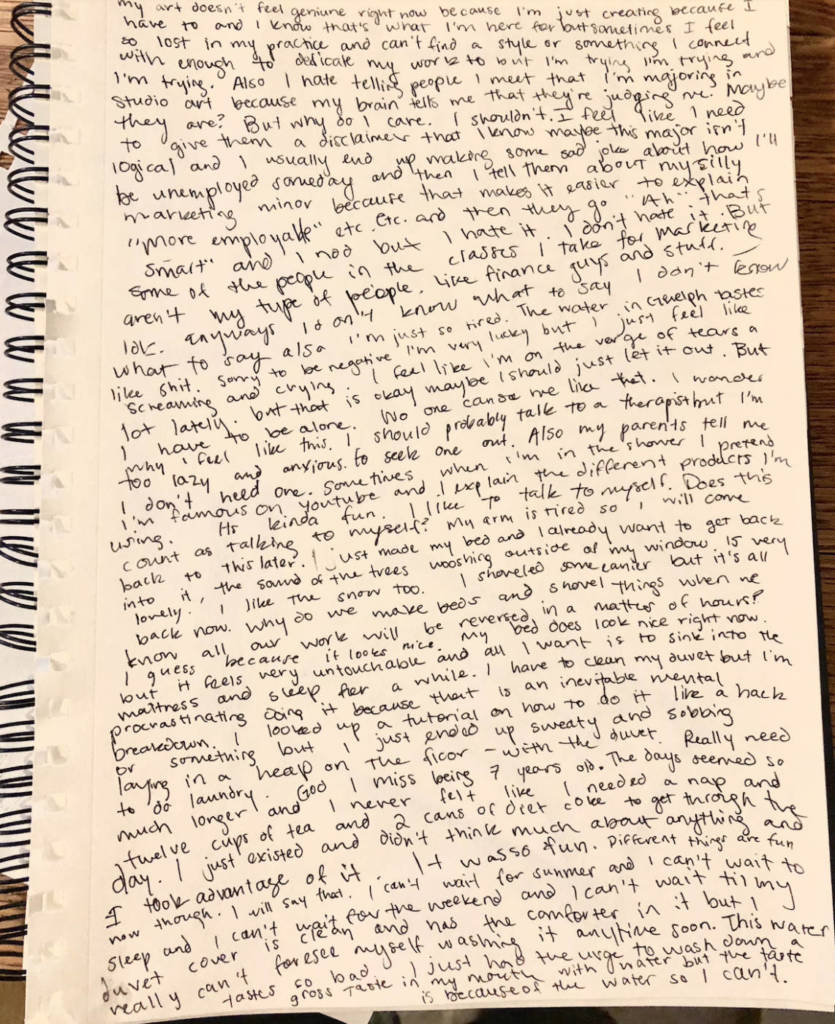 my art doesn't feel geniune right now because I'm just creating because I
have to and I know that's what I'm here for but sometimes I feel
so lost in my practice and can't find a style or something I connect
with enough to dedicate my work to but I'm trying I'm trying and
I'm trying. Also I hate telling people I meet that I'm majoring in
studio art because my brain tells me that they're judging me. Maybe
they are? But why do I care. I shouldn't. I feel like I need
to give them a disclaimer that I know maybe this major isn't
logical and I usually end up making some sad joke about how I'll
be unemployed someday and then I tell them about my silly
marketing minor because that makes it easier to explain
"more employable" etc. etc. and then they go "Ah" that's
smart" and I nod but I hate it. I don't hate it. But
some of the people in the classes I take for marketing
aren't my type of people. Like finance guys and stuff.
idk. anyways I don't know what to say I don't know
what to say also I'm just so tired. The water in Guelph tastes
like shit. Sorry to be negative, I'm very lucky but I just feel like
screaming and crying. I feel like I'm on the verge of tears a
lot lately. but that is okay maybe I should just let it out. But
I have to be alone. No one can see me like that. I wonder
why I feel like this. I should probably talk to a therapist but I'm
too lazy and anxious to seek one out. Also my parents tell me
I don't need one. Sometimes when I'm in the shower I pretend
I'm famous on youtube and I explain the different products I'm
using. Its kinda fun. I like to talk to myself. Does this
count as talking to myself? My arm is tired so I will come
back to this later. I just made my bed and I already want to get back
into it, the sound of the trees wooshing outside of my window is very
lovely. I like the snow too. I shoveled some earlier but it's all
back now. Why do we make beds and shovel things when we
know all our work will be reversed in a matter of hours?
I guess because it looks nice. My bed does look nice right now.
but it feels very untouchable and all I want is to sink into the
mattness and sleep for a while. I have to clean my duvet but I'm
procrastinating doing it because that is an inevitable mental
breakdown. I looked up a tutorial on how to do it like a hack
or something but I just ended up sweaty and sobbing
laying in a heap on the floor - with the duvet. Really need
to do laundry. God I miss being 7 years old. The days seemed so
much longer and I never felt like I needed a nap and
twelve cups of tea and 2 cans of diet coke to get through the
day. I just existed and didn't think much about anything and
I took advantage of it. It was so fun. Different things are fun
now though. I will say that. I can't wait for summer and I can't wait to
sleep and I can't wait for the weekend and I can't wait til my
duvet cover is clean and has the comforter in it but I
really can't foresee myself washing it anytime soon. This water
tastes so bad. I just had the urge to wash down a
gross taste in my mouth with water but the taste
is because of the water so I can't.